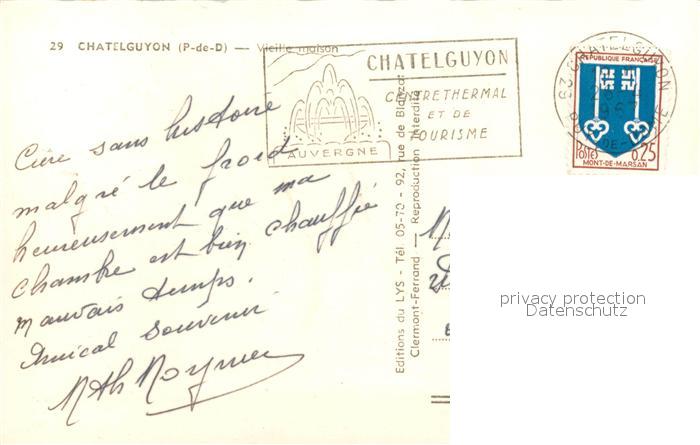 29 CHATELGUYON (P-de-D) — Vieille maison
CHATELGUYON
CENTRE THERMAL
ET DE
TOURISME
AUVERGNE
CHATELGUYON
1967
REPUBLIQUE FRANÇAISE
POSTES 0,25
MONT-DE-MARSAN
Cure sans histoire
malgré le froid
heureusement que ma
chambre est bien chauffée
mauvais temps.
Amical souvenir
Editions du LYS - Tél. 05-70 - 92, rue de Blanzat
Clermont-Ferrand — Reproduction Interdite
privacy protection
Datenschutz